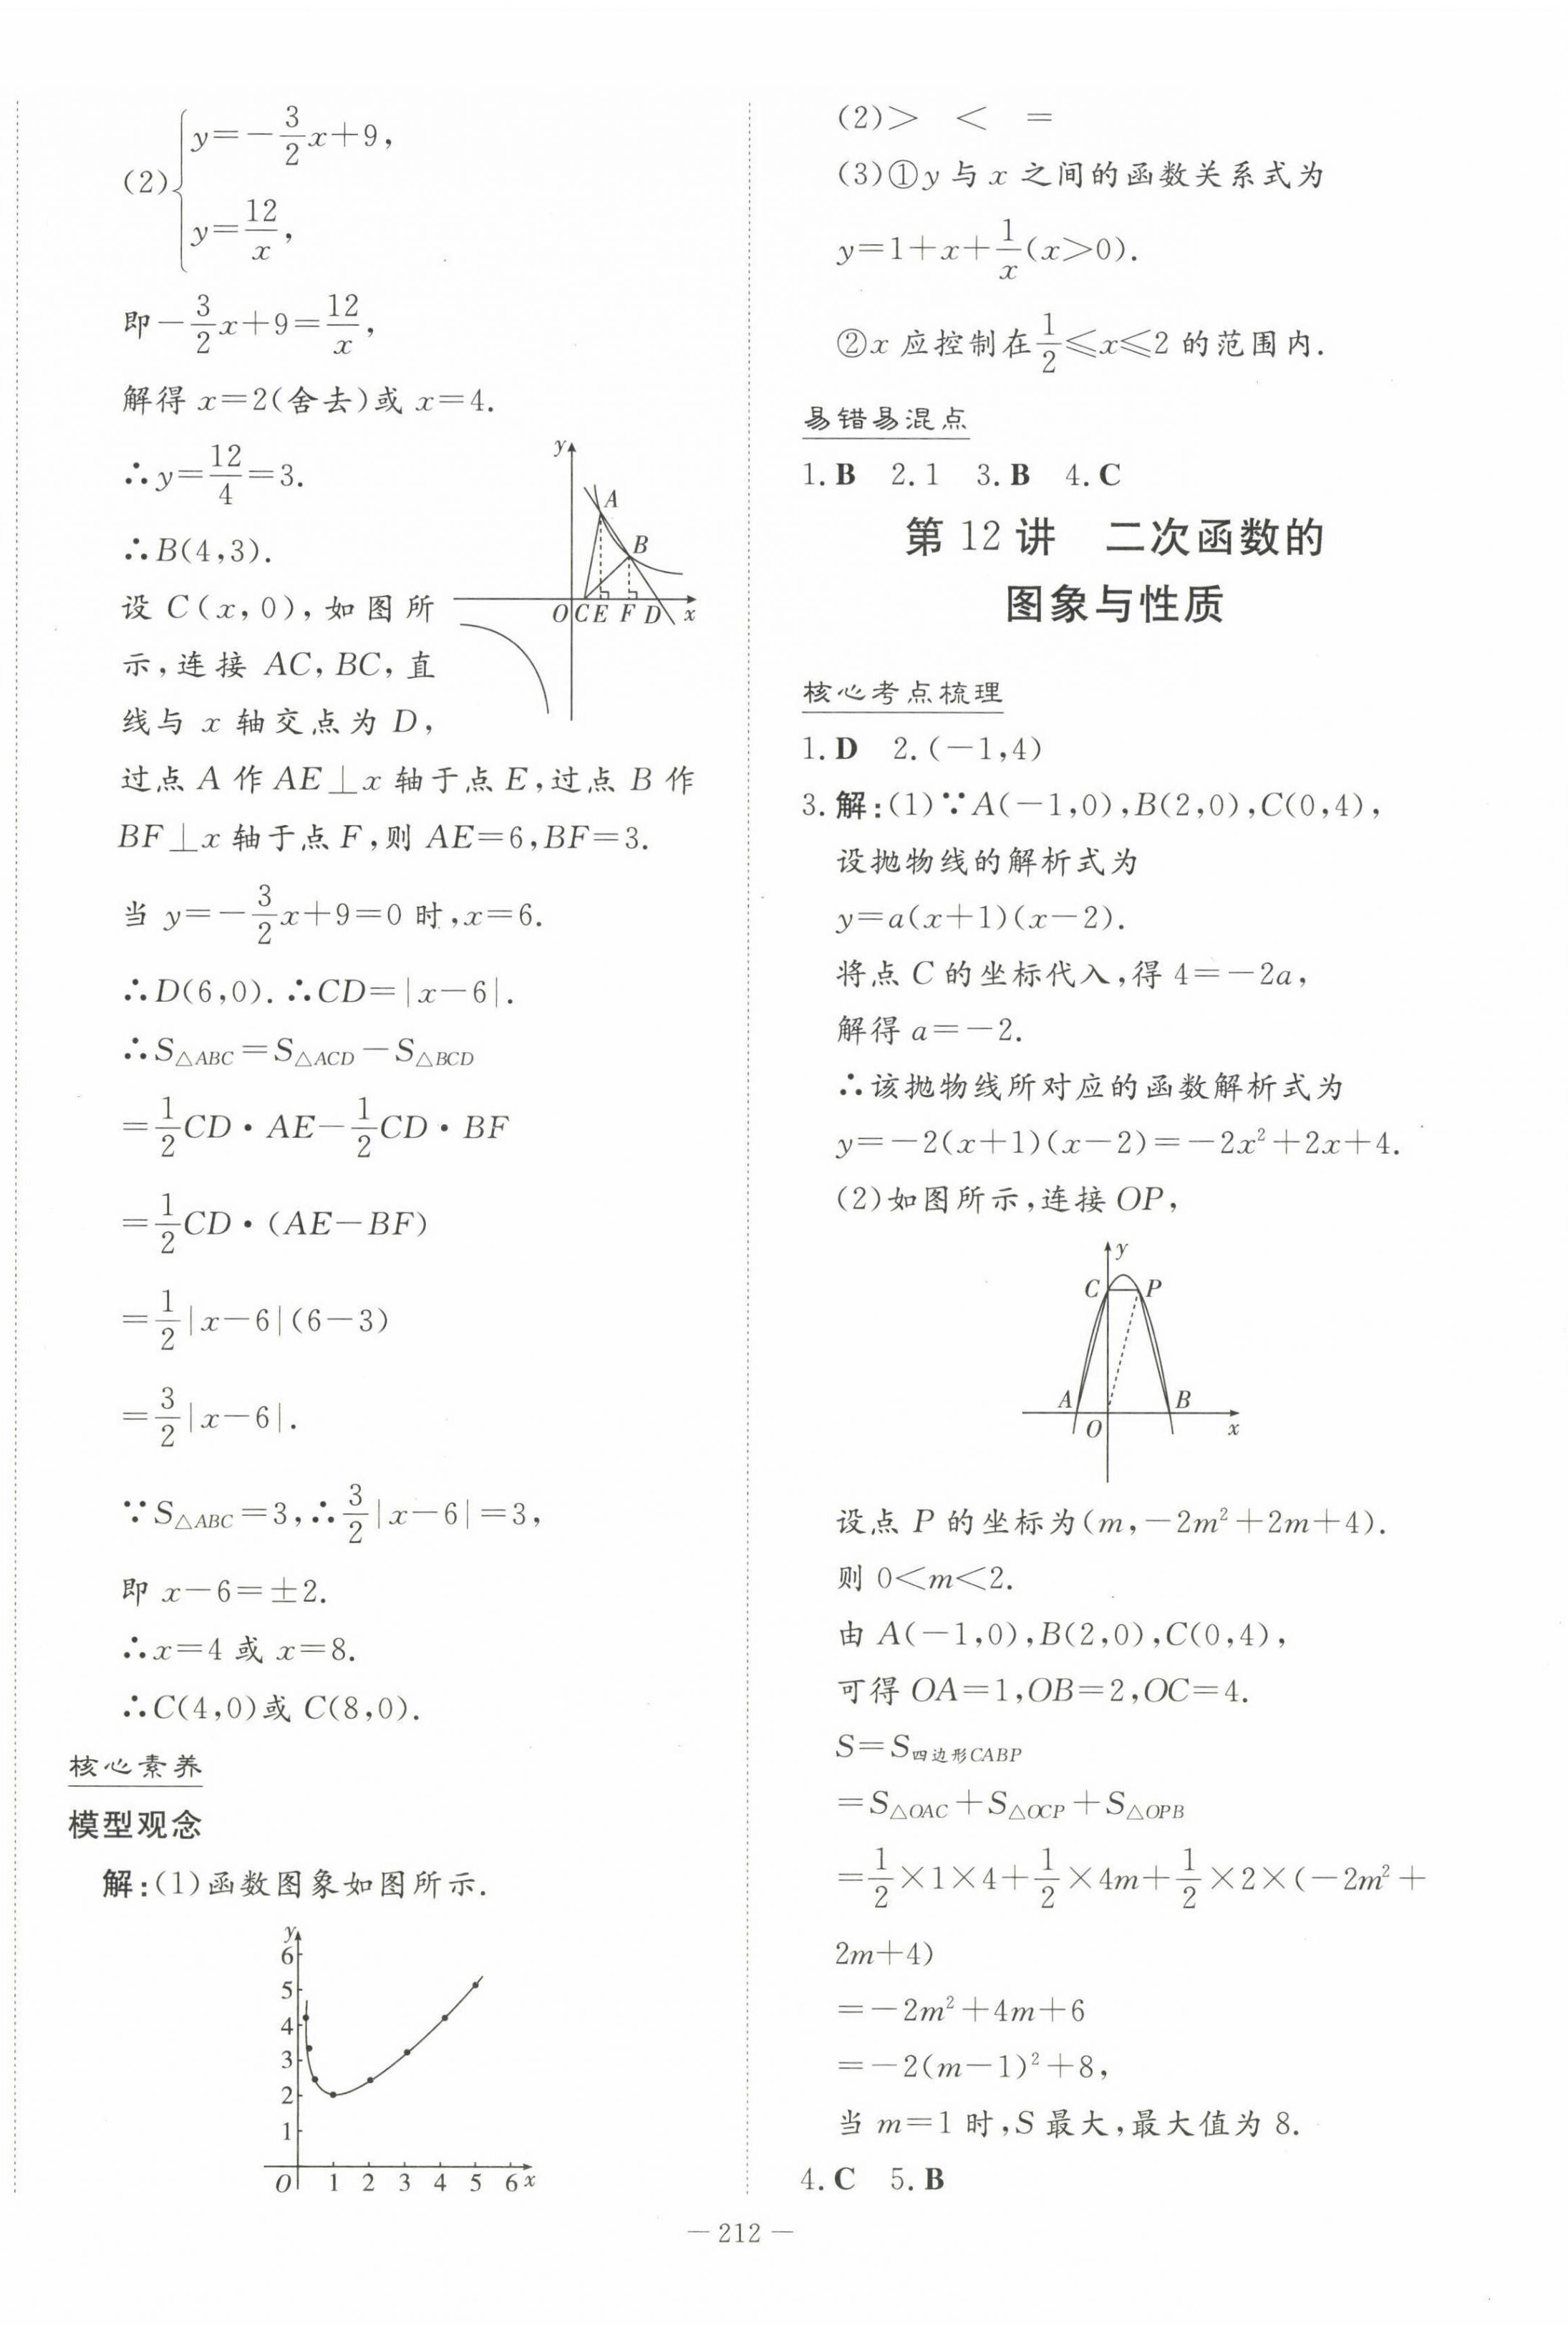 (2){y=-3/2x+9,
y=12/x,
即-3/2x+9=12/x,
解得 x=2(舍去)或 x=4.
∴y=12/4=3.
∴B(4,3).
设 C(x,0),如图所
示,连接 AC,BC,直
线与 x 轴交点为 D,
y
A
B
O C E F D x
过点 A 作 AE⊥x 轴于点 E,过点 B 作
BF⊥x 轴于点 F,则 AE=6,BF=3.
当 y=-3/2x+9=0 时,x=6.
∴D(6,0).∴CD=|x-6|.
∴S△ABC=S△ACD-S△BCD
=1/2CD·AE-1/2CD·BF
=1/2CD·(AE-BF)
=1/2|x-6|(6-3)
=3/2|x-6|.
∵S△ABC=3,∴3/2|x-6|=3,
即 x-6=±2.
∴x=4 或 x=8.
∴C(4,0)或 C(8,0).
核心素养
模型观念
解:(1)函数图象如图所示.
y
6
5
4
3
2
1
O 1 2 3 4 5 6 x
(2)> < =
(3)①y 与 x 之间的函数关系式为
y=1+x+1/x(x>0).
②x 应控制在1/2≤x≤2 的范围内.
易错易混点
1.B 2.1 3.B 4.C
第 12 讲 二次函数的
图象与性质
核心考点梳理
1.D 2.(-1,4)
3.解:(1)∵A(-1,0),B(2,0),C(0,4),
设抛物线的解析式为
y=a(x+1)(x-2).
将点 C 的坐标代入,得 4=-2a,
解得 a=-2.
∴该抛物线所对应的函数解析式为
y=-2(x+1)(x-2)=-2x²+2x+4.
(2)如图所示,连接 OP,
y
C P
A B
O x
设点 P 的坐标为(m,-2m²+2m+4).
则 0<m<2.
由 A(-1,0),B(2,0),C(0,4),
可得 OA=1,OB=2,OC=4.
S=S四边形CABP
=S△OAC+S△OCP+S△OPB
=1/2×1×4+1/2×4m+1/2×2×(-2m²+
2m+4)
=-2m²+4m+6
=-2(m-1)²+8,
当 m=1 时,S 最大,最大值为 8.
4.C 5.B
— 212 —